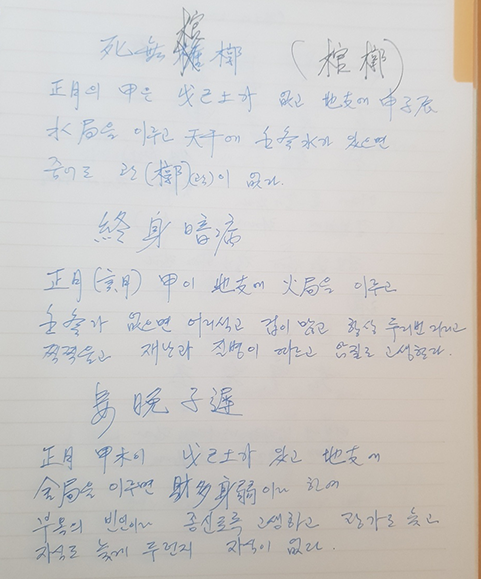 死無棺槨 (棺槨)
正月의 甲은 戊己土가 없고 地支에 申子辰
水局을 이루고 天干에 壬癸水가 있으면
죽어도 관(槨)(곽)이 없다.
終身暗病
正月(寅月) 甲이 地支에 火局을 이루고
壬癸가 없으면 어리석고 겁이 많고 항상 두리번거리고
쩍쩍울고 재난과 질병이 따르고 암질로 고생한다.
妻晩子遲
正月 甲木이 戊己土가 있고 地支에
金局을 이루면 財多身弱이라 하여
부옥의 빈인이라 종신토록 고생하고 장가도 늦고
자식도 늦게 두던지 자식이 없다.